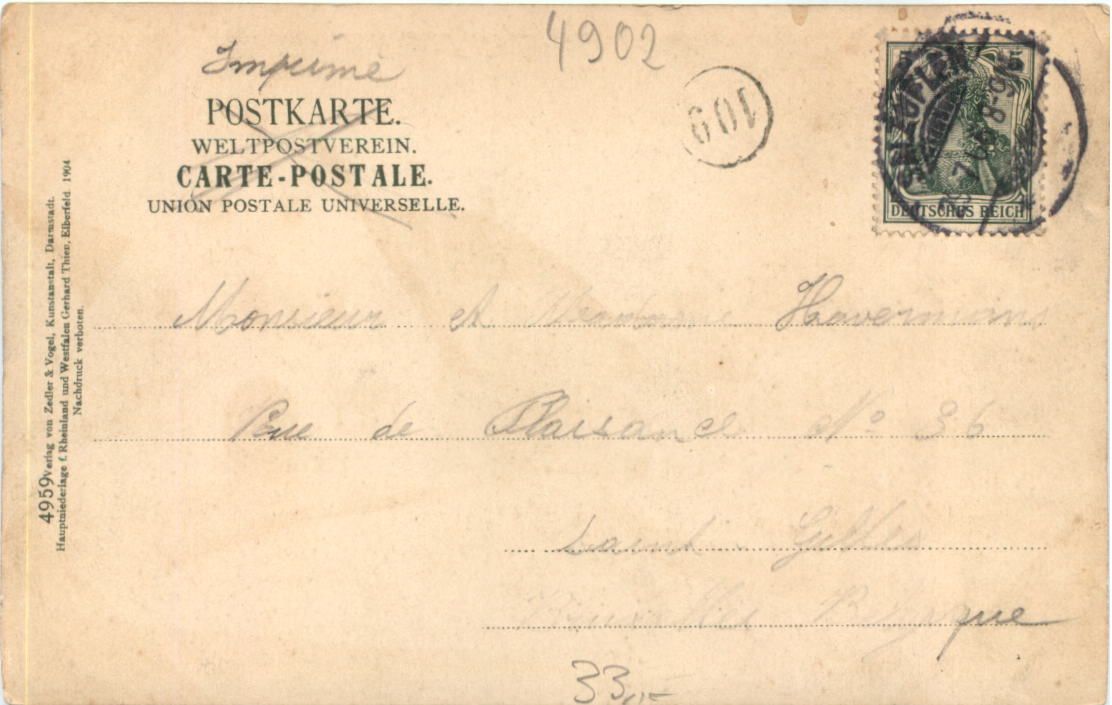 4902
Imprimé
POSTKARTE.
WELTPOSTVEREIN.
CARTE-POSTALE.
UNION POSTALE UNIVERSELLE.
109
5 5
DEUTSCHES REICH
Monsieur et Madame Havermans
Rue de Plaisance Nº 36
Saint Gilles
Bruxelles Belgique
33,-
4959 Verlag von Zedler & Vogel, Kunstanstalt, Darmstadt.
Hauptniederlage f. Rheinland und Westfalen Gerhard Thien, Elberfeld. 1904
Nachdruck verboten.